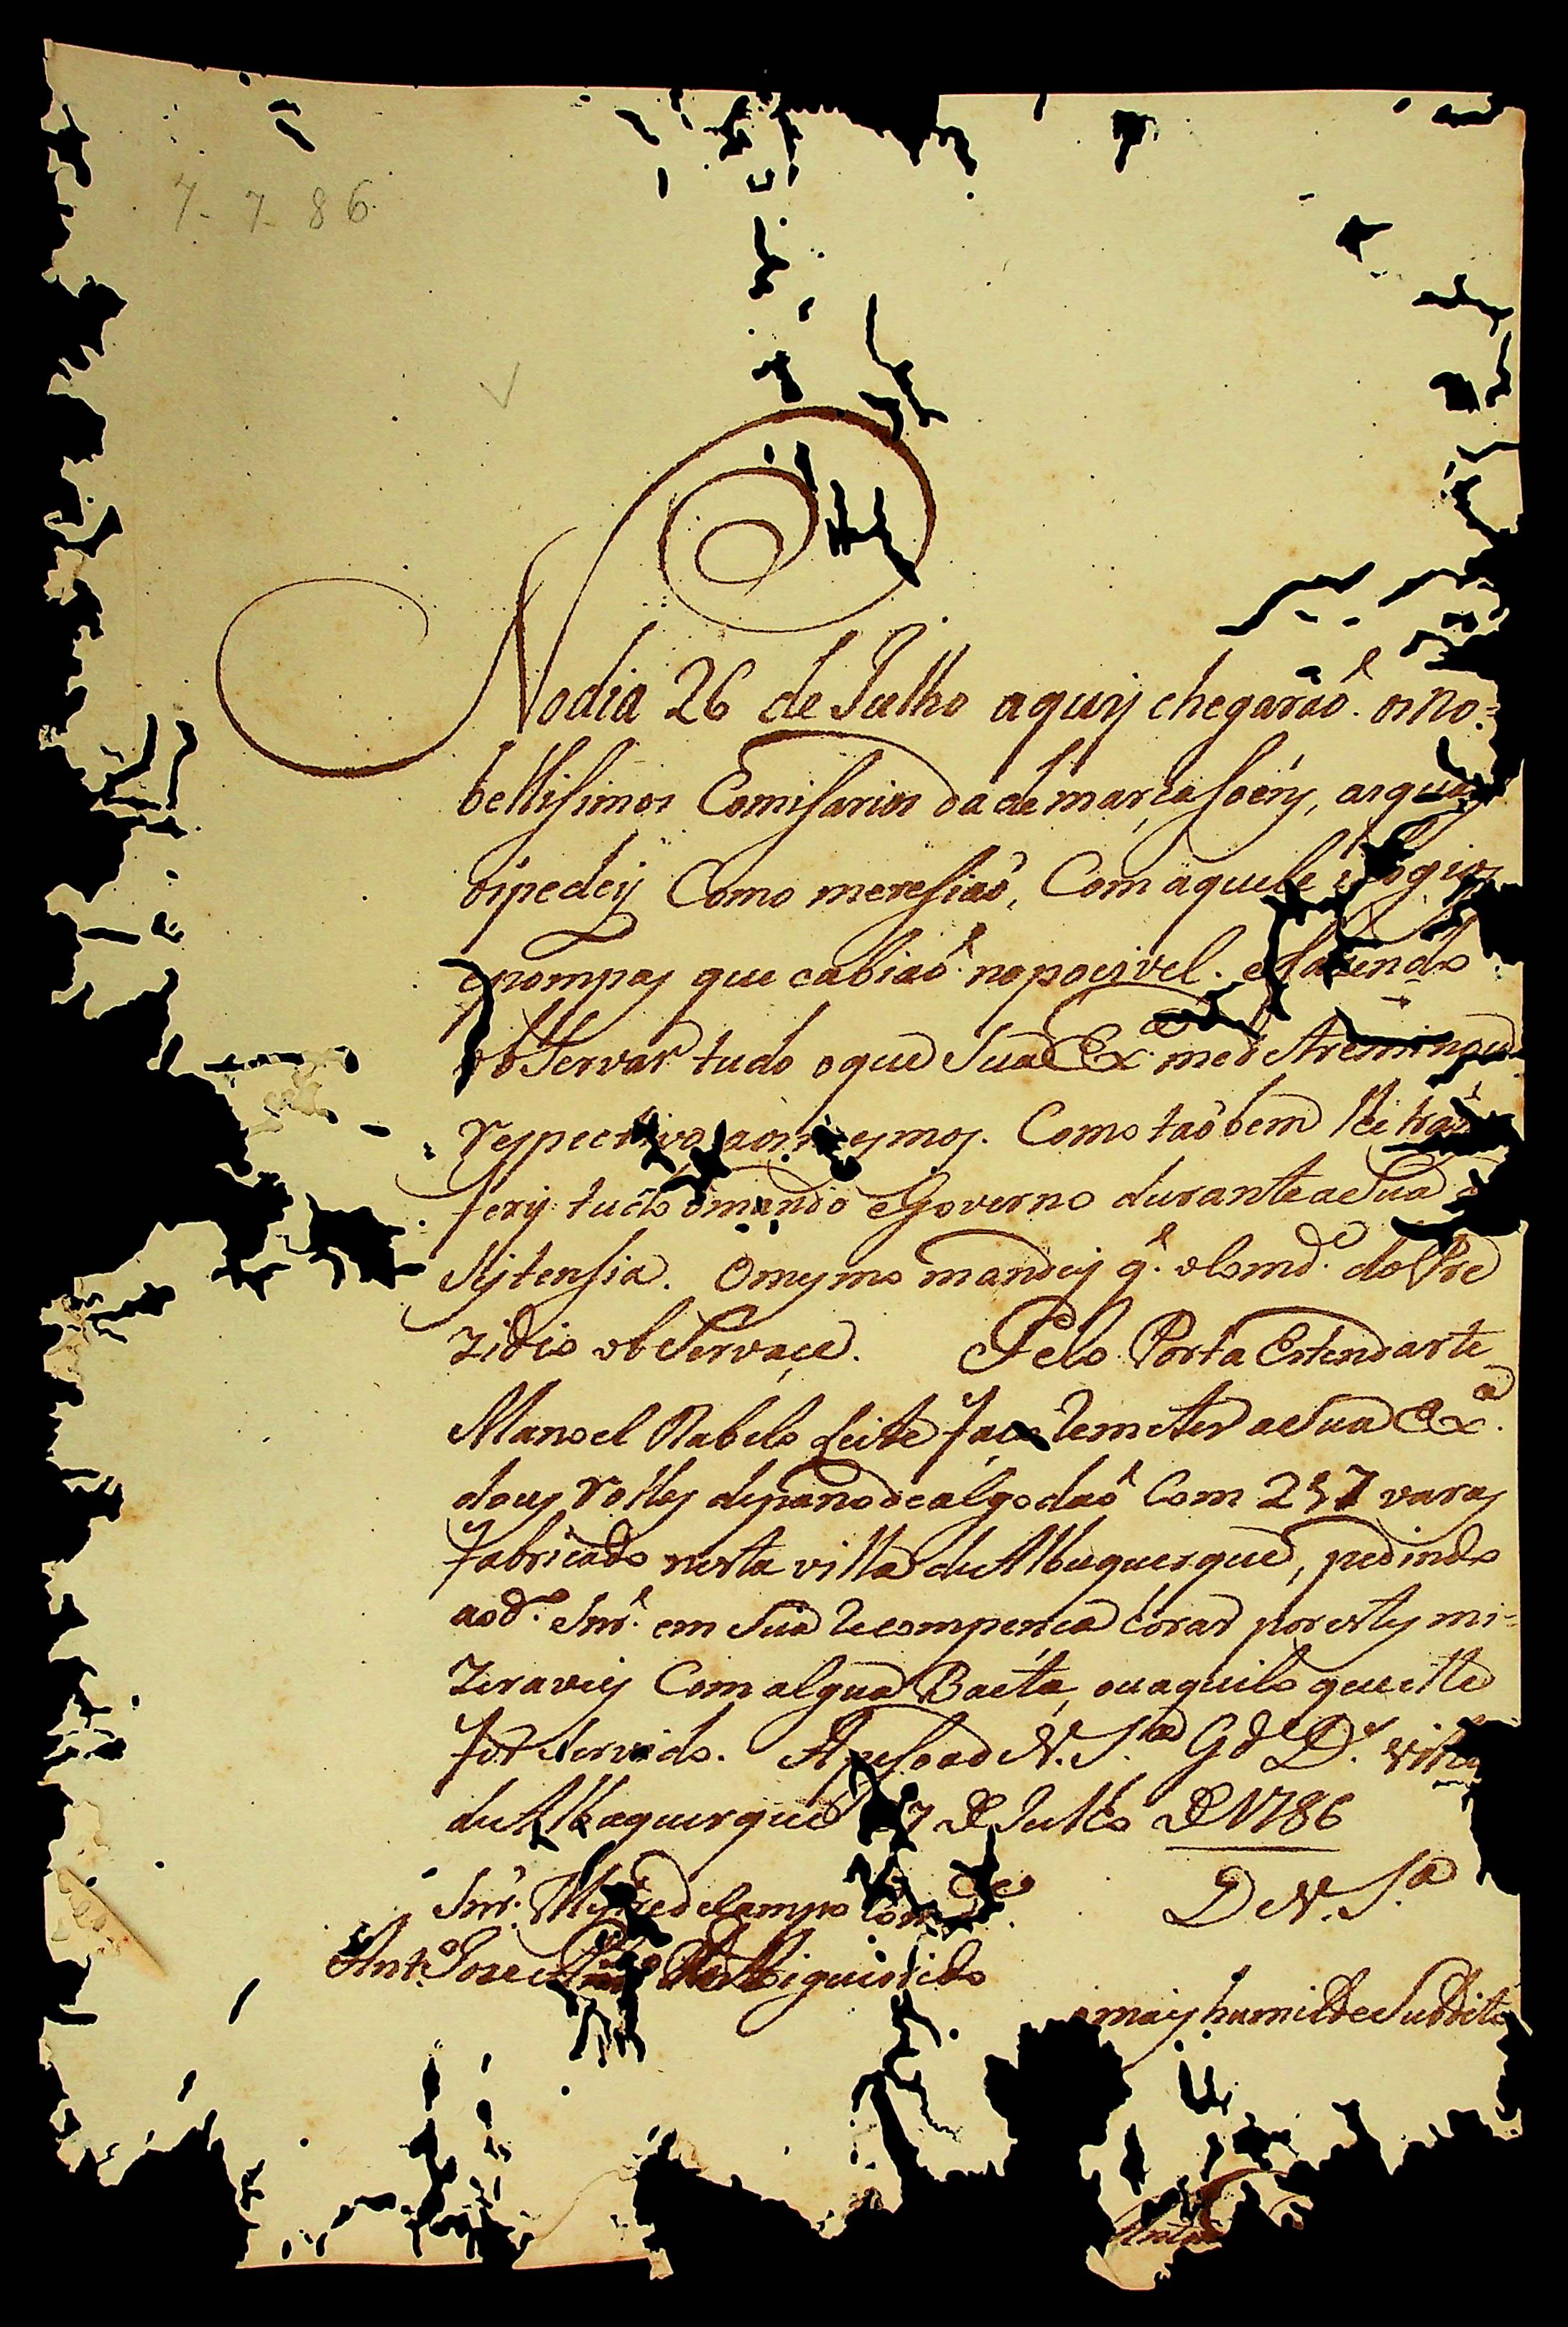 7-7-86
Nodia 26 de Julho aquij chegaraõ os no=
bellisimos Comisarios da de marcasoéns, as quais
ospedeij Como meresiaõ, Com aquele
epompas que cabiaõ no posivel. efasendo
obServar tudo oque Sua Exª. me detreminou
respectivo aos mesmos. Como taõbem
ferij tudo omando eGoverno durante a Sua
Sistensia. Omesmo mandeij q. oComd.e do Pre
zidio obServaçe. Pelo Porta Estendarte
Manoel Rabelo Leite faço Remeter a Sua Exª.
dous rolles de pano de algodaõ Com 257 varas
fabricado nesta villa de Albuquerque, pedindo
aod.º Snr. em Sua Recompença corar por estes mi-
zeraveis Com algua Baeta, ou aquilo que elle
for Servido. Apesoa de V. S.ª G.de D.s villa
de Albuquerque 7 de Julho de 1786
Snr. Mestre de Campo Com.de
De V. S.ª
Ant.º Jose
omais humilde Subdito
Anto